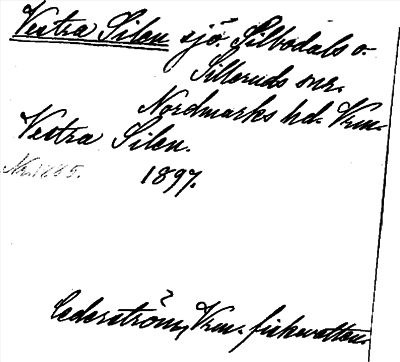 Vestra Silen sjö. Silbodals o.
Silleruds snr.
Nordmarks hd. Vrm.
Vestra Silen.
1897.
Cederström, Vrm. fiskevatten.